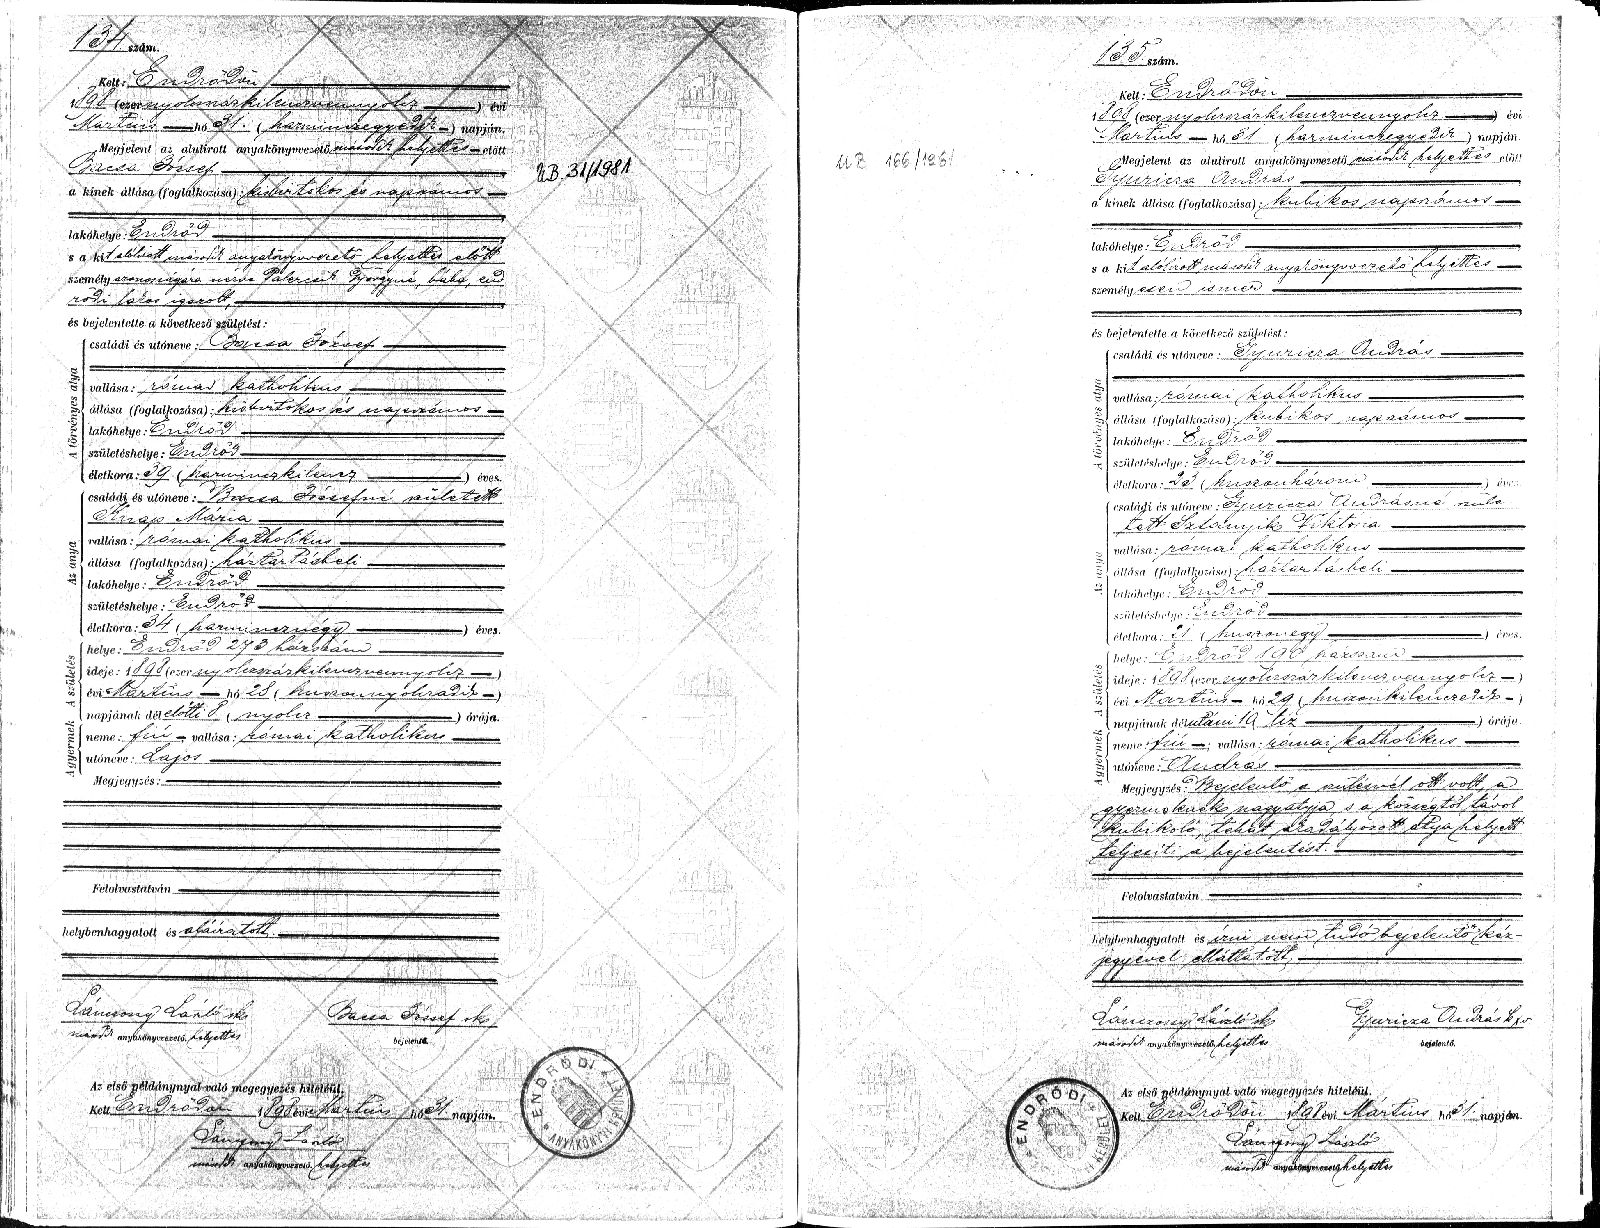 134. szám.
Kelt: Endrődön
1898 (ezer nyolcszázkilenczvennyolcz) évi
Martius hó 31. (harminczegyedik) napján.
Megjelent az alulírott anyakönyvvezető második helyettes előtt
Bacsa József
a kinek állása (foglalkozása): kisbirtokos és napszámos
lakóhelye: Endrőd
s a kit alólirott második anyakönyvvezető helyettes előtt
személyazonosságára nézve György­né bába, end
rődi lakos igazolt,
és bejelentette a következő születést:
A törvényes atya
családi és utóneve: Bacsa József
vallása: római katholikus
állása (foglalkozása): kisbirtokos és napszámos
lakóhelye: Endrőd
születéshelye: Endrőd
életkora: 39 (harminczkilencz) éves.
Az anya
családi és utóneve: Bacsa Józsefné született
Knap Mária
vallása: római katholikus
állása (foglalkozása): háztartásbeli
lakóhelye: Endrőd
születéshelye: Endrőd
életkora: 34 (harmincznégy) éves.
A gyermek A születés
helye: Endrőd 273 házszám
ideje: 1898 (ezer nyolczszázkilenczvennyolcz)
évi Martius hó 28 (huszonnyolczadik)
napjának délelőtti 8 (nyolcz) órája.
neme: fiú vallása: római katholikus
utóneve: Lajos
Megjegyzés:
Felolvastatván
helybenhagyatott és aláiratott.
Lánczony László sk. Bacsa József sk.
második anyakönyvvezető helyettes bejelentő.
Az első példánynyal való megegyezés hiteléül.
Kelt Endrődön 1898 évi Martius hó 31. napján.
Lánczony László
második anyakönyvvezető helyettes
ENDRŐDI ANYAKÖNYVI KERÜLET
ÚB. 31/1981
135. szám.
Kelt: Endrődön
1898 (ezer nyolczszázkilenczvennyolcz) évi
Martius hó 31 (harminczegyedik) napján.
Megjelent az alulírott anyakönyvvezető második helyettes előtt
Gyuricza András
a kinek állása (foglalkozása): kubikos napszámos
lakóhelye: Endrőd
s a kit alólirott második anyakönyvvezető helyettes
személyesen ismer
és bejelentette a következő születést:
A törvényes atya
családi és utóneve: Gyuricza András
vallása: római katholikus
állása (foglalkozása): kubikos napszámos
lakóhelye: Endrőd
születéshelye: Endrőd
életkora: 23 (huszonhárom) éves.
Az anya
családi és utóneve: Gyuricza Andrásné szüle
tett Sztanyik Viktora
vallása: római katholikus
állása (foglalkozása): háztartásbeli
lakóhelye: Endrőd
születéshelye: Endrőd
életkora: 21 (huszonegy) éves.
A gyermek A születés
helye: Endrőd 190 házszám
ideje: 1898 (ezer nyolczszázkilenczvennyolcz)
évi Martius hó 29 (huszonkilenczedik)
napjának délutáni 10 tíz) órája.
neme: fiú; vallása: római katholikus
utóneve: András
Megjegyzés: Bejelentő a szülésnél ott volt, a
gyermeknek nagyatyja s a községtől távol
kubikoló, tehát akadályozott atya helyett
teljesiti a bejelentést.
Felolvastatván
helybenhagyatott és írni nem tudó bejelentő kéz-
jegyével elláttatott,
Lánczony László sk. Gyuricza András k.jv
második anyakönyvvezető helyettes bejelentő.
Az első példánynyal való megegyezés hiteléül.
Kelt Endrődön 1898 évi Mártius hó 31. napján.
Lánczony László
második anyakönyvvezető helyettes
ENDRŐDI KERÜLET